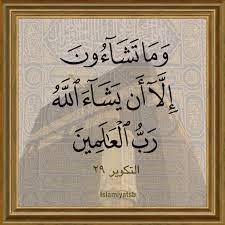 وَمَا تَشَآءُونَ
إِلَّآ أَن يَشَآءَ ٱللَّهُ
رَبُّ ٱلۡعَٰلَمِينَ
التكوير ٢٩
islamiyatsb